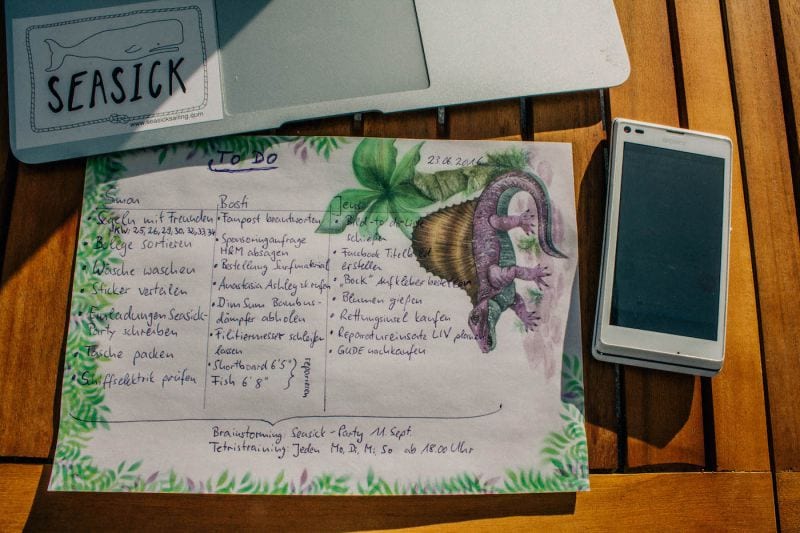 SEASICK
www.seasicksailing.com
TO DO
23.06.2016
Simon
• Segeln mit Freunden
KW: 25, 26, 29, 30, 32, 33, 34
• Belege sortieren
• Wäsche waschen
• Sticker verteilen
• Einladungen Seasick-
Party schreiben
• Tasche packen
• Schiffselektrik prüfen
Basti
• Fanpost beantworten
• Sponsoringanfrage
H&M absagen
• Bestellung Surfmaterial
• Anastasia Ashley
• Dim Sum Bambus-
dämpfer abholen
• Filitiermesser schleifen
lassen
• Shortboard 6'5"
Fish 6'8"
reparieren
Jens
schießen
• Facebook Titelbild
erstellen
• "Bock" Aufkleber bestellen
• Blumen gießen
• Rettungsinsel kaufen
• Reparatureinsatz LIV planen
• GUDE nachkaufen
Brainstorming: Seasick-Party 11. Sept.
Tetristraining: Jeden Mo, Di, Mi, So ab 18.00 Uhr
SONY